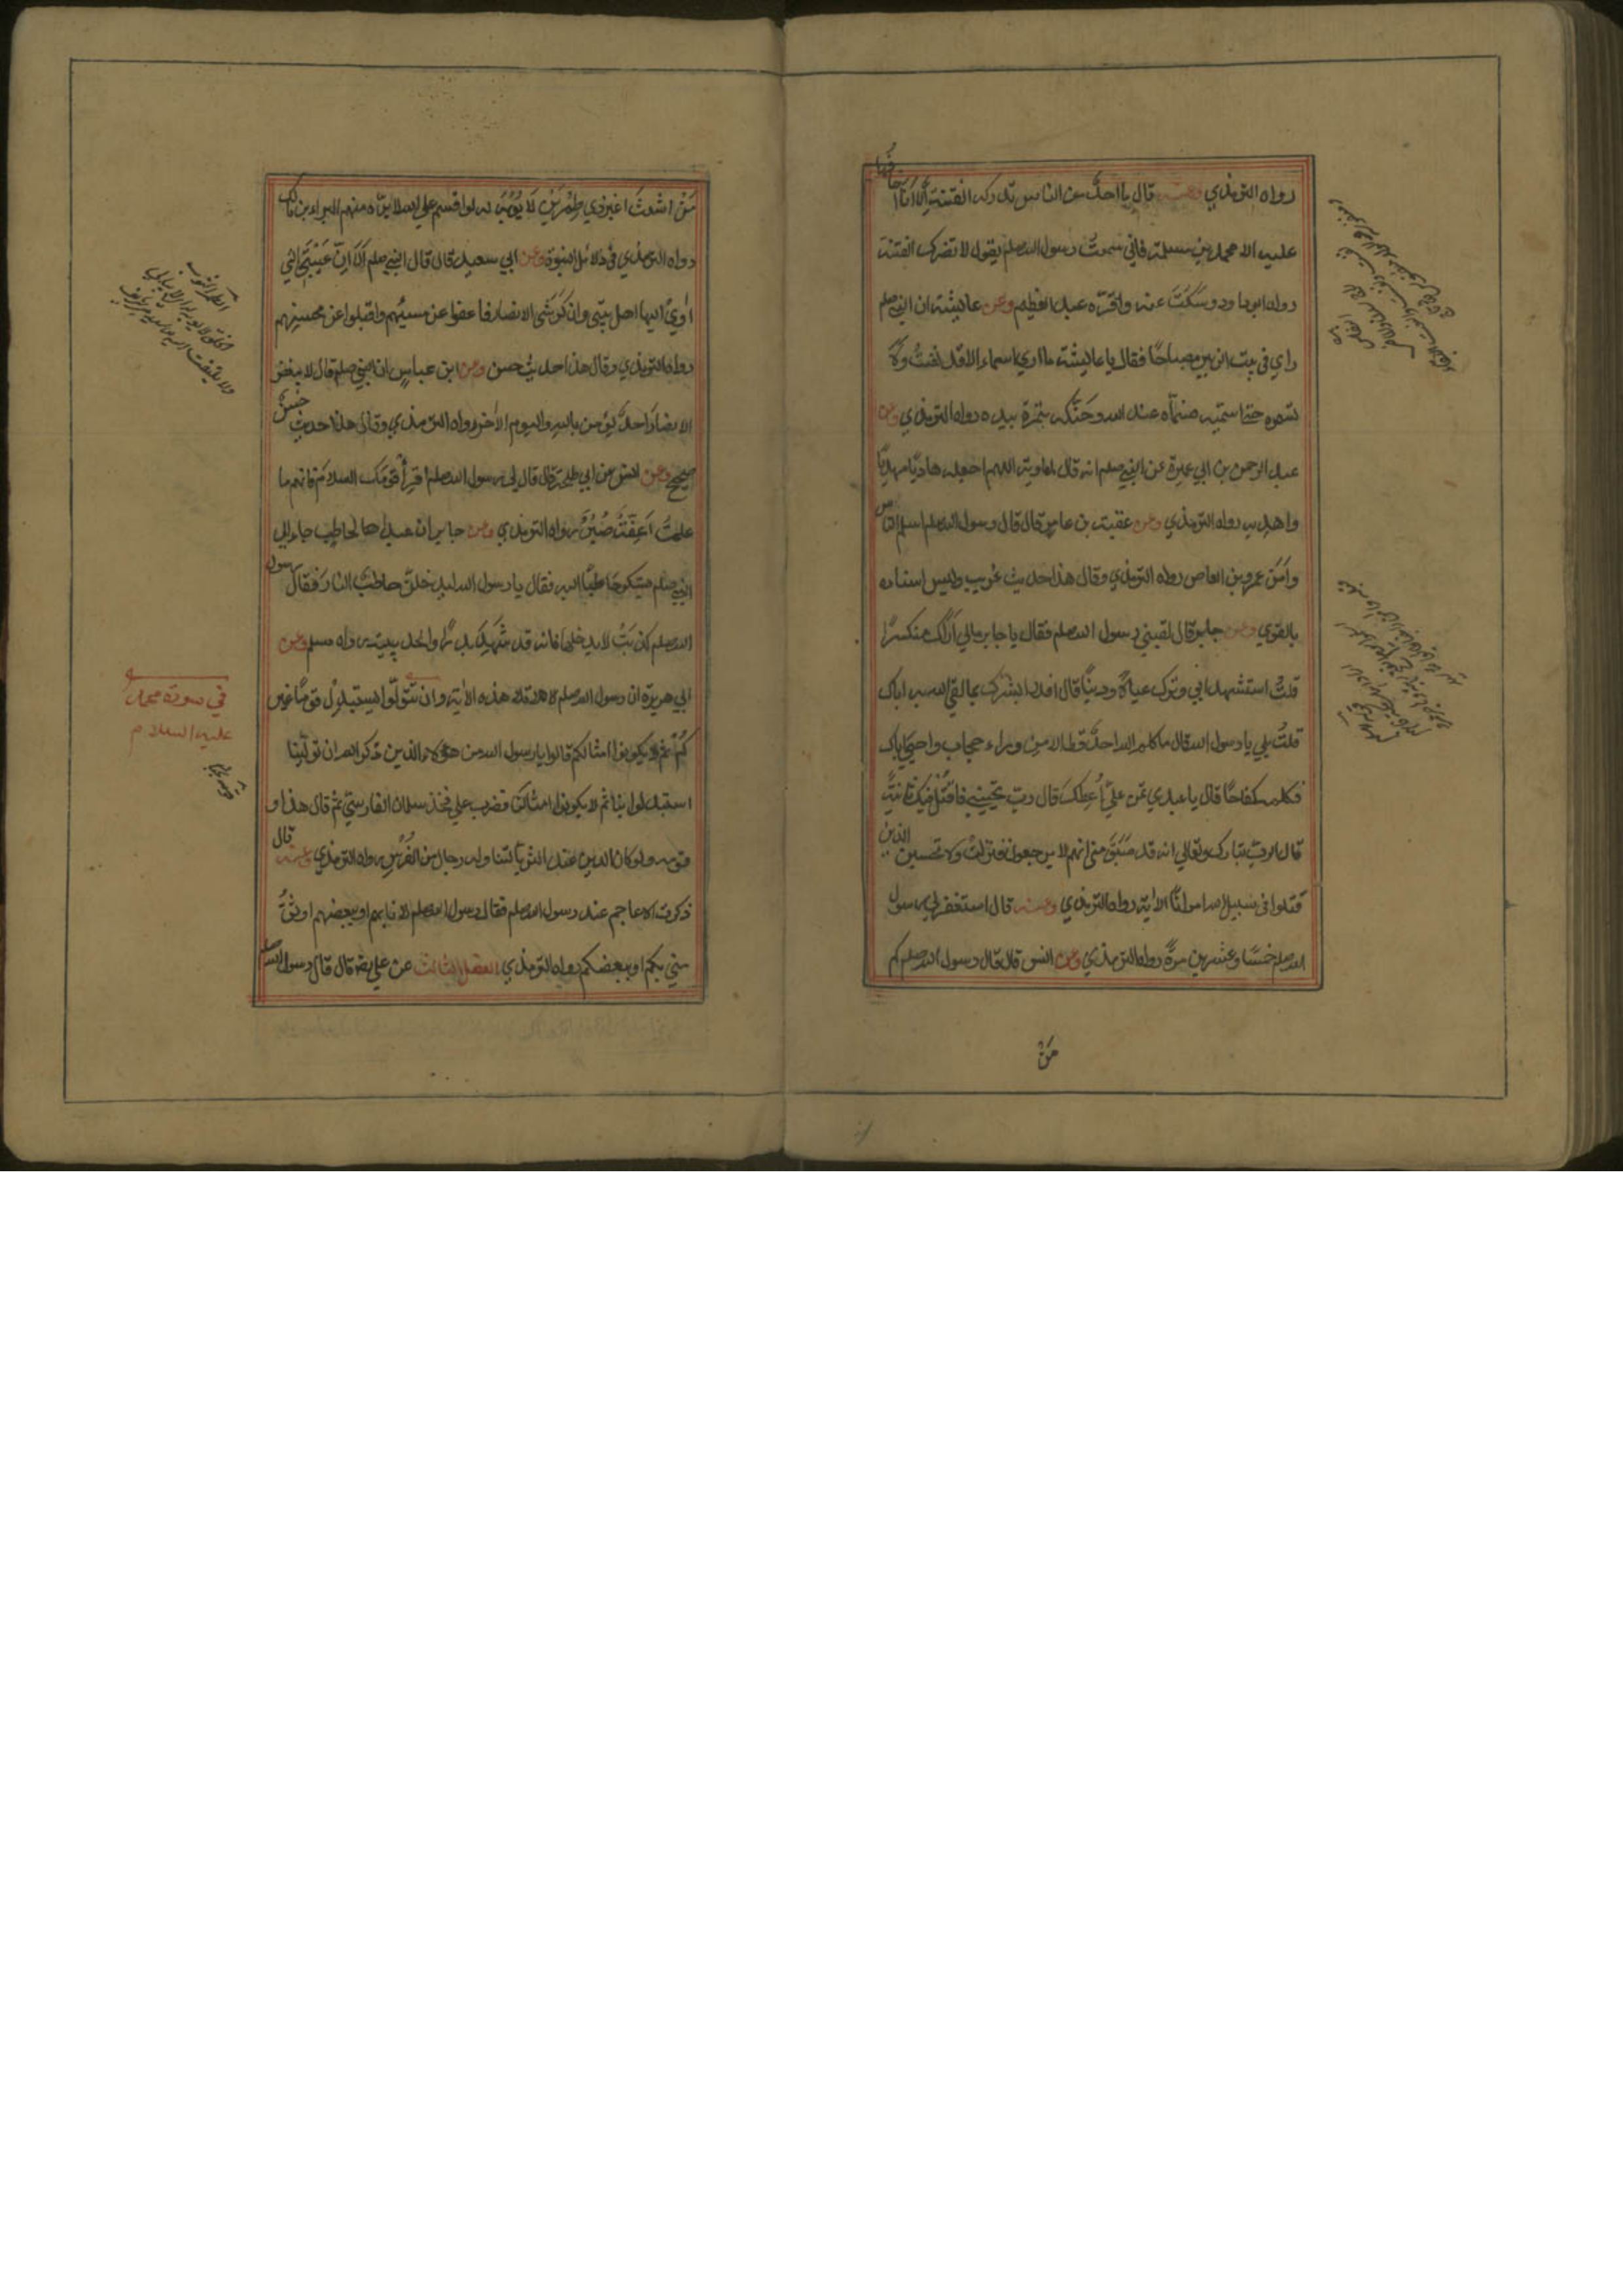 رواه الترمذي وعنه قال ما احدٌ من الناس تدركه الفتنة الا انا اخافها
عليه الا محمد بن مسلمة فاني سمعتُ رسول الله صلم يقول لا تضرك الفتنة
رواه ابو داود وسَكَتَ عنه واقرّه عبد العظيم وعن عايشة ان النبي صلم
راي في بيت الزبير مصباحًا فقال يا عايشة ما اري اسماء الا قد نفست ولا
تسموه حتا اسميه فسمّاه عبد الله وحَنّكه بتمرة بيده رواه الترمذي وعن
عبد الرحمن بن ابي عميرة عن النبي صلم انه قال لمعاوية اللهم اجعله هاديًا مهديًا
واهد به رواه الترمذي وعن عقبة بن عامر قال قال رسول الله صلم اسلم الناس
وآمَنَ عمرو بن العاص رواه الترمذي وقال هذا حديث غريب وليس اسناده
بالقوي وعن جابر قال لقيني رسول الله صلم فقال يا جابر مالي اَراك منكسرًا
قلتُ استشهد ابي وترك عيالا ودينًا قال افلا ابشرك بما لقي الله به اباك
قلتُ بلي يا رسول الله قال ما كلم الله احدًا قط الا من وراء حجاب واحيَا اباك
فكلمه كفاحًا قال يا عبدي تمن عليّ اُعطك قال رب تحييني فاقتل فيك ثانيةً
قال الرب تبارك وتعالي انه قد سَبَقَ مني انهم لا يرجعون فنزلت ولا تحسبن الذين
قتلوا في سبيل الله امواتًا الاية رواه الترمذي وعنه قال استغفر لي رسول
الله صلم خمسًا وعشرين مرةً رواه الترمذي وعن انس قال قال رسول الله صلم كم
مَنْ
مَنْ اشعثَ اغبر ذي طِمْرَيْنِ لا يُؤبَهُ له لو اقسم علي الله لابرّه منهم البراء بن مالك
رواه الترمذي في دلائل النبوة وعن ابي سعيد قال قال النبي صلم اَلا اِنَّ عَيْبَتِي التي
اٰوِيْ اليها اهل بيتي وان كَرَشي الانصار فاعفوا عن مسيئهم واقبلوا عن محسنهم
رواه الترمذي وقال هذا حديث حسن وعن ابن عباس ان النبي صلم قال لا يبغض
الانصارَ احدٌ يؤمن بالله واليوم الآخر رواه الترمذي وقال هذا حديث حسن
صحيح وعن انس عن ابي طلحة قال قال لي رسول الله صلم اقرِأْ قومَك السلام فانهم ما
علمتُ اَعِفَّةٌ صُبُرٌ رواه الترمذي وعن جابر ان عبدا لحاطب جاء الي
النبي صلم يشكو حاطبًا اليه فقال يا رسول الله ليدخلنّ حاطبٌ النار فقال رسول
الله صلم كذبتَ لا يدخلها فانه قد شَهِدَ بدرًا والحديبية رواه مسلم وعن
ابي هريرة ان رسول الله صلم تلا هذه الاية وان تتولّوا يستبدل قومًا غير
كُم ثم لا يكونوا امثالكم قالوا يا رسول الله من هؤلاء الذين ذكر الله ان تولّينا
استبدلوا بنا ثم لا يكونوا امثالنا فضرب علي فخذ سلمان الفارسيّ ثم قال هذا و
قومه ولو كان الدين عند الثريا لتناوله رجال من الفُرْسِ رواه الترمذي وعنه قال
ذكرت الاعاجم عند رسول الله صلم فقال رسول الله صلم لانا بهم او ببعضهم اوثقُ
مني بكم او ببعضكم رواه الترمذي الفصل الثالث عن علي رضه قال قال رسول الله صلم
في سورة محمد
عليه السلام